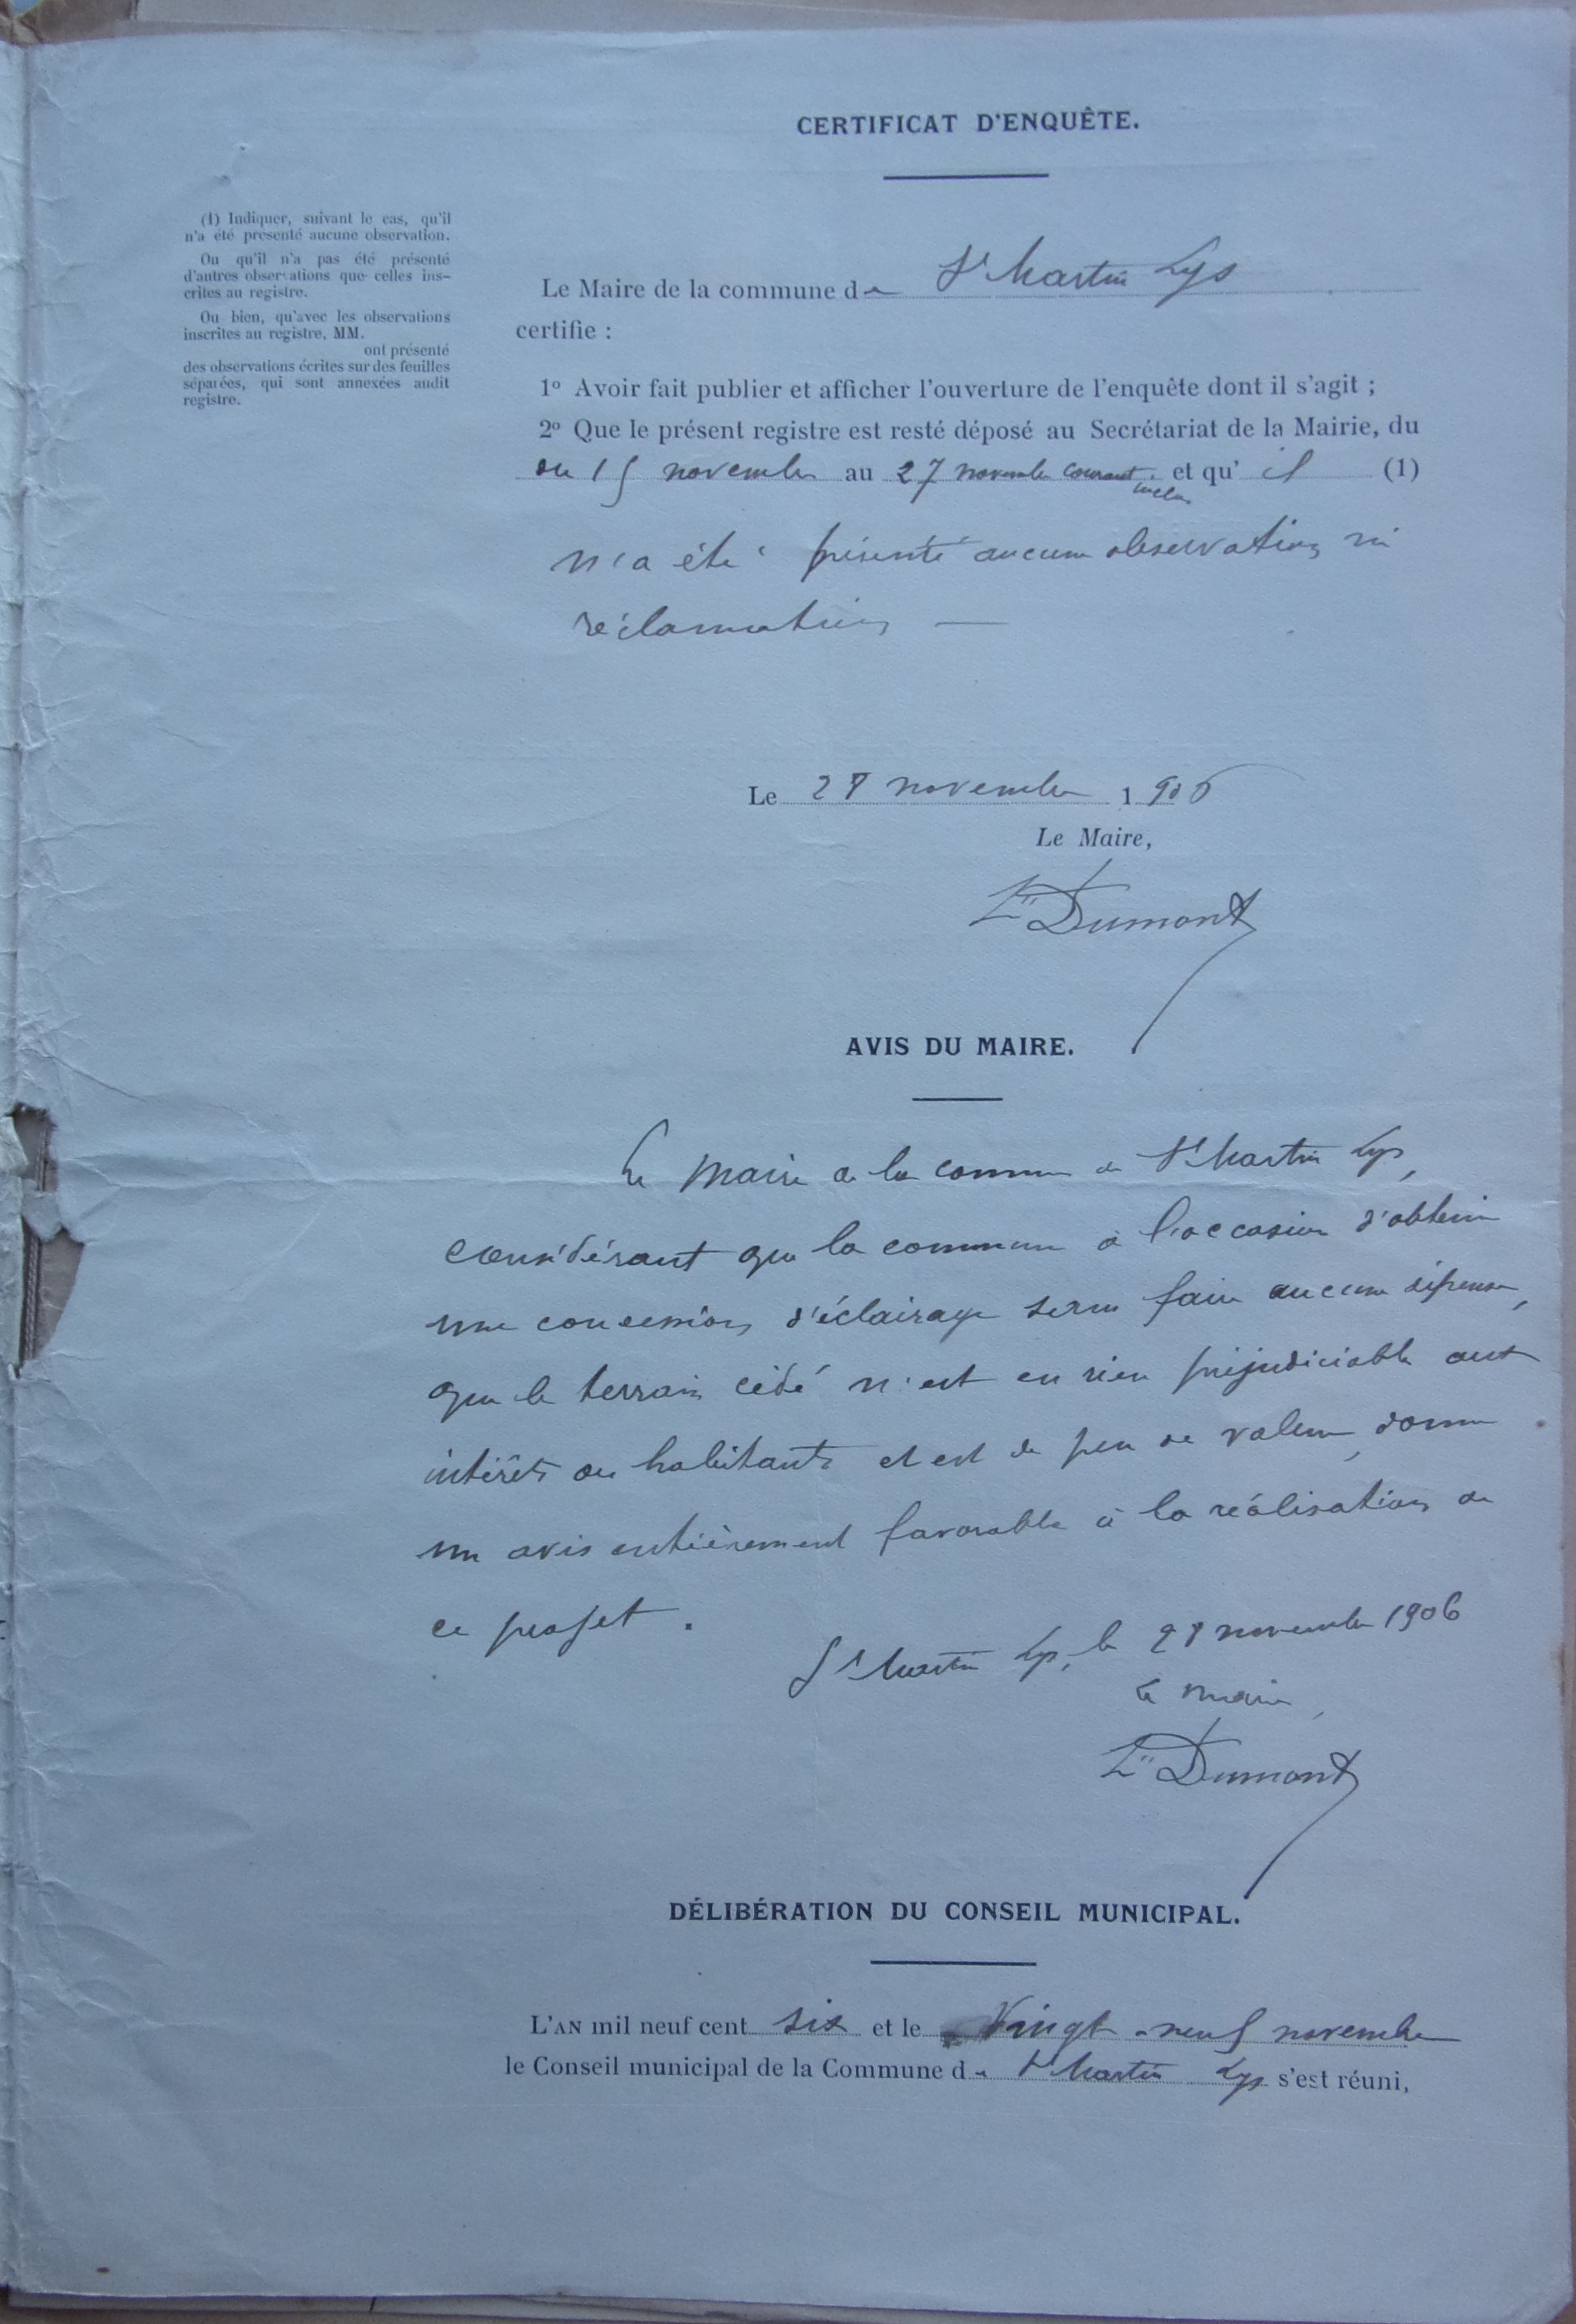 CERTIFICAT D'ENQUÊTE.
(1) Indiquer, suivant le cas, qu'il
n'a été presenté aucune observation.
Ou qu'il n'a pas été présenté
d'autres observations que celles ins-
crites au registre.
Ou bien, qu'avec les observations
inscrites au registre, MM.
ont présenté
des observations écrites sur des feuilles
séparées, qui sont annexées audit
registre.
Le Maire de la commune de St Martin Lys
certifie :
1° Avoir fait publier et afficher l'ouverture de l'enquête dont il s'agit ;
2° Que le présent registre est resté déposé au Secrétariat de la Mairie, du
du 15 novembre au 27 novembre courant inclus et qu'il (1)
n'a été présenté aucune observation ni
réclamation —
Le 28 novembre 1906
Le Maire,
Dumont
AVIS DU MAIRE.
Le Maire de la commune de St Martin Lys,
considérant que la commune a l'occasion d'obtenir
une concession d'éclairage sans faire aucune dépense,
que le terrain cédé n'est en rien préjudiciable aux
intérêts des habitants et est de peu de valeur, donne
un avis entièrement favorable à la réalisation de
ce projet.
St Martin Lys, le 28 novembre 1906
Le Maire,
Dumont
DÉLIBÉRATION DU CONSEIL MUNICIPAL.
L'AN mil neuf cent six et le Vingt-neuf novembre
le Conseil municipal de la Commune de St Martin Lys s'est réuni,